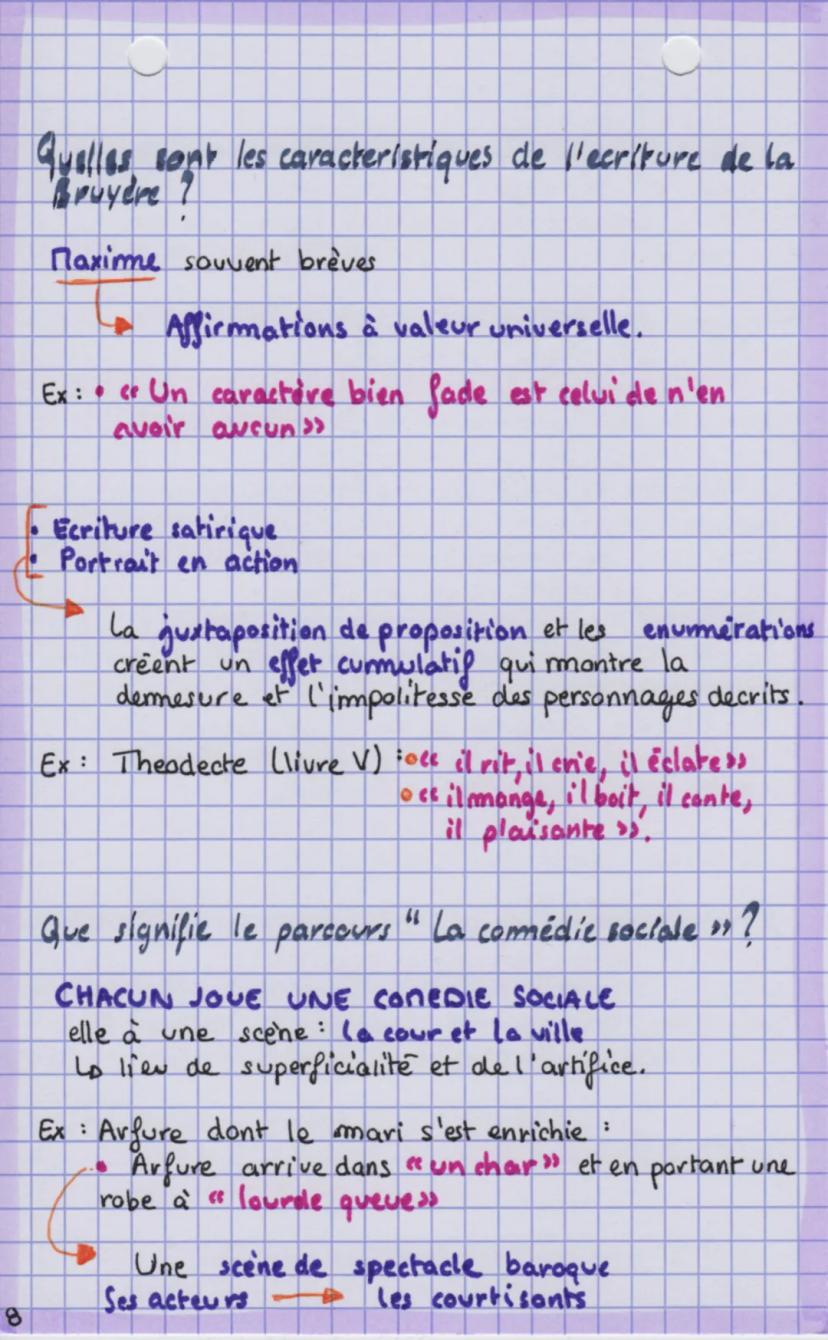 Quelles sont les caracteristiques de l'ecriture de la
Bruyère ?
Maxime souvent brèves
Affirmations à valeur universelle.
Ex : • « Un caractère bien fade est celui de n'en
avoir aucun »
• Ecriture satirique
• Portrait en action
La juxtaposition de proposition et les enumérations
créent un effet cummulatif qui montre la
demesure et l'impolitesse des personnages decrits.
Ex : Theodecte (livre V) : • « il rit, il crie, il éclate »
• « il mange, il boit, il conte,
il plaisante ».
Que signifie le parcours " La comédie sociale » ?
CHACUN JOUE UNE COMEDIE SOCIALE
elle à une scène : la cour et la ville
↳ lieu de superficialité et de l'artifice.
Ex : Arfure dont le mari s'est enrichie :
• Arfure arrive dans « un char » et en portant une
robe à « lourde queue »
Une scène de spectacle baroque
Ses acteurs → les courtisants
8